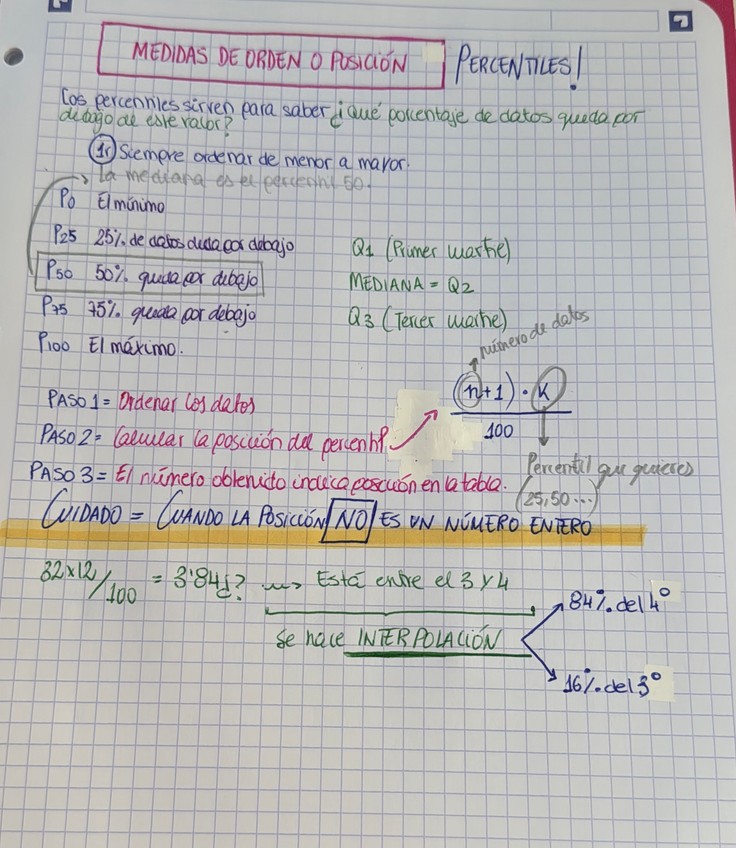 MEDIDAS DE ORDEN O POSICIÓN PERCENTILES!
Los percentiles sirven para saber ¿Qué porcentaje de datos queda por
debajo de este valor?
1. Siempre ordenar de menor a mayor.
→ La mediana es el percentil 50.
P0 El mínimo
P25 25% de datos queda por debajo Q1 (Primer cuartil)
P50 50% queda por debajo MEDIANA = Q2
P75 75% queda por debajo Q3 (Tercer cuartil)
P100 El máximo.
número de datos
(n+1) · K
100
PASO 1 = Ordenar los datos
PASO 2 = Calcular la posición del percentil
Percentil que quieres
(25,50...)
PASO 3 = El número obtenido indica posición en la tabla.
CUIDADO = CUANDO LA POSICIÓN NO ES UN NÚMERO ENTERO
32x12/100 = 3'84¿? → Está entre el 3 y 4
84% del 4º
Se hace INTERPOLACIÓN
16% del 3º